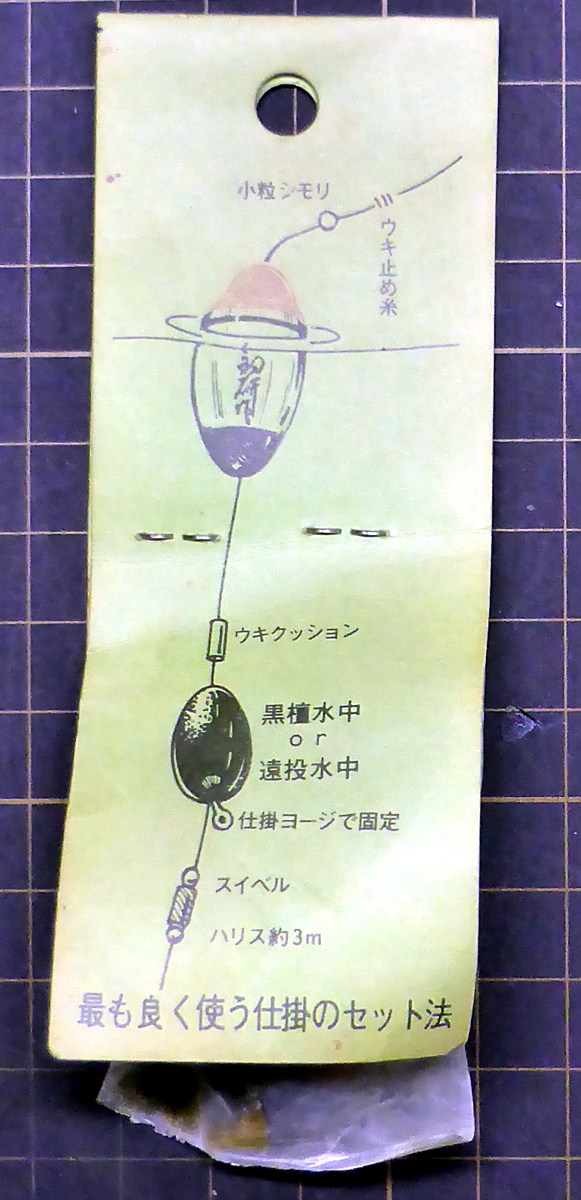 小粒シモリ
ウキ止め糸
釣研作
ウキクッション
黒檀水中
or
遠投水中
仕掛ヨージで固定
スイベル
ハリス約3m
最も良く使う仕掛のセット法